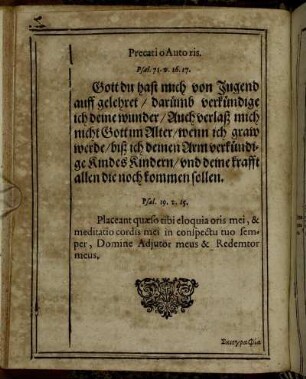 Precati o Auto ris.
Psal. 71. v. 16. 17.
Gott du hast mich von Jugend
auff gelehret / darümb verkündige
ich deine wunder / Auch verlaß mich
nicht Gott im Alter / wenn ich graw
werde / biß ich deinen Arm verkündi-
ge Kindes Kindern / vnd deine krafft
allen die noch kommen sollen.
Psal. 19. v. 15.
Placeant quæso tibi eloquia oris mei, &
meditatio cordis mei in conspectu tuo sem-
per, Domine Adjutor meus & Redemtor
meus.